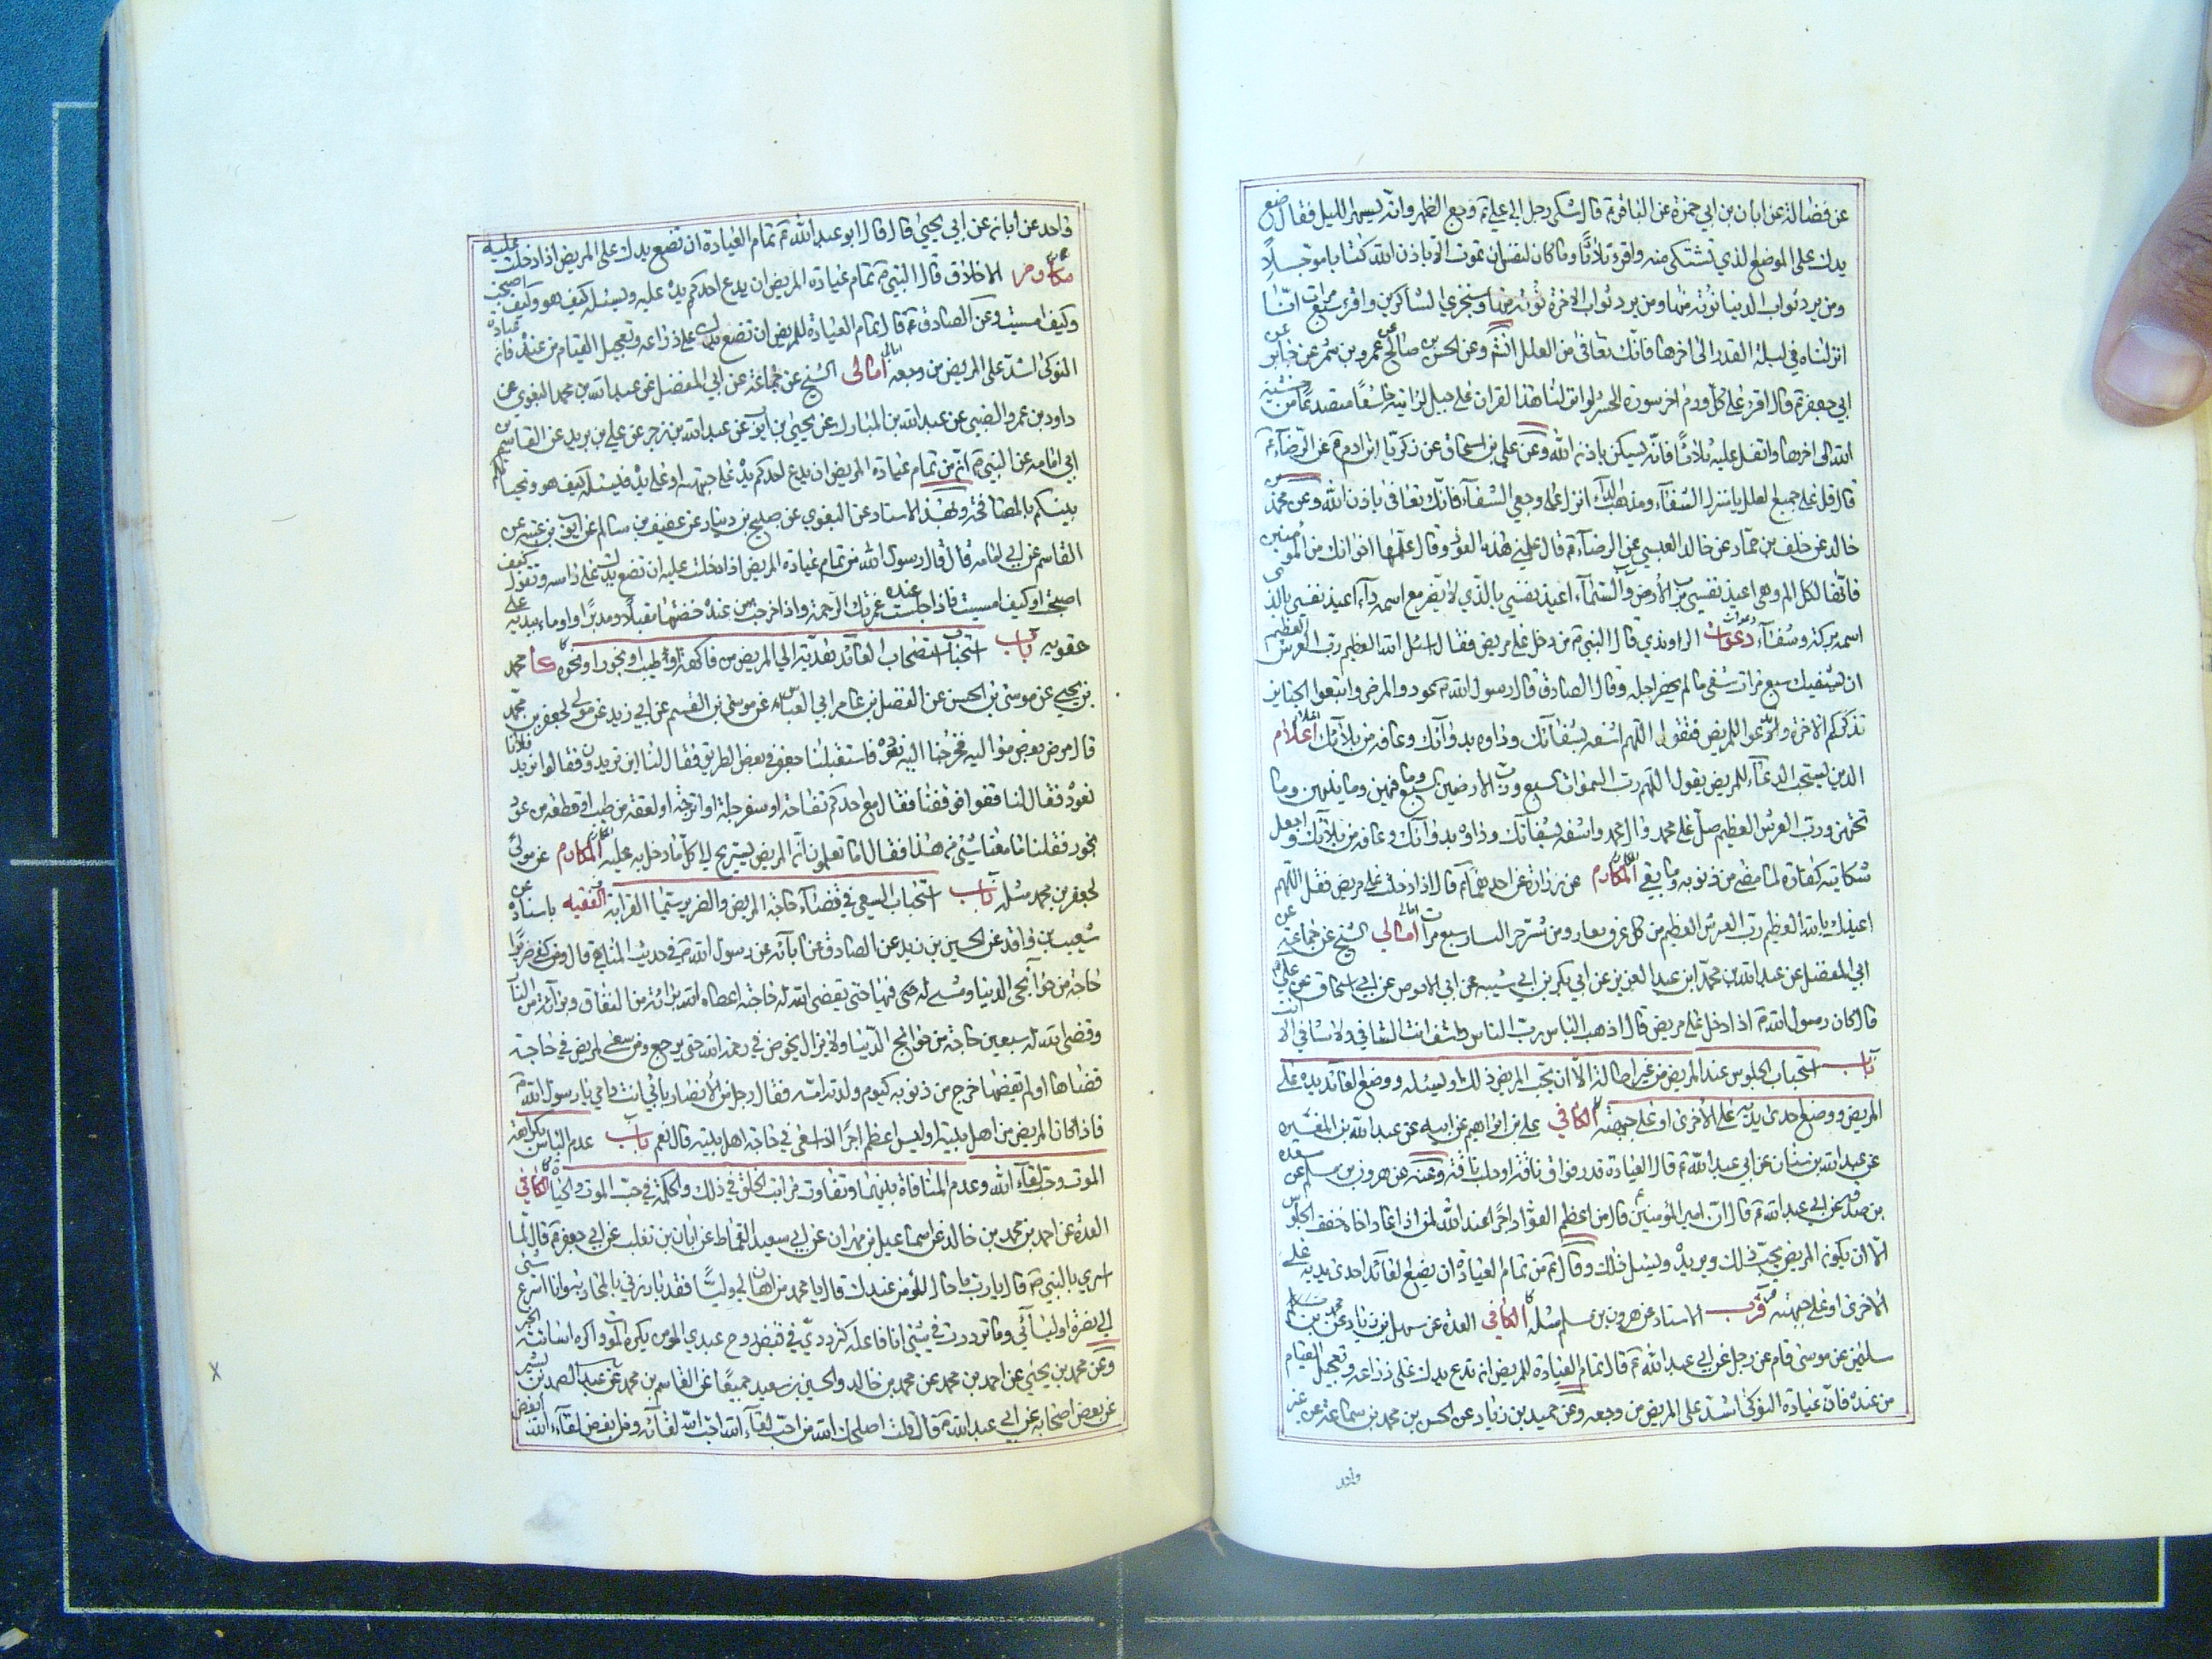 عن فضالة عن ابان بن ابي حمزة عن الباقر ع قال شكى رجل الى علي ع وجع الظهر وانه ليسهر الليل فقال ضع
يدك على الموضع الذي تشتكي منه واقرء ثلاثا وما كان لنفس ان تموت الا باذن الله كتابا مؤجلا
ومن يرد ثواب الدنيا نؤته منها ومن يرد ثواب الاخرة نؤته منها وسنجزي الشاكرين واقرء سبع مرات انا
انزلناه في ليلة القدر الى اخرها فانك تعافى من العلل انشم وعن الحسن بن صالح عن عمرو بن شمر عن جابر عن
ابي جعفر ع قال اقرء على كل ورم اخر سورة الحشر لو انزلنا هذا القران على جبل لرايته خاشعا متصدعا من خشية
الله الى اخرها واتفل عليه ثلاثا فانه يسكن باذن الله وعن علي بن اسحاق عن زكريا ابن ادم ع عن الرضا ع
قال قل على جميع العلل يا منزل الشفاء ومذهب الداء انزل على وجعي الشفاء فانك تعافى باذن الله وعن محمد بن
خالد عن خلف بن حماد عن خالد العبسي عن الرضا ع قال علمني هذه العوذة وقال علمها اخوانك من المؤمنين
فانها لكل الم وهي اعيذ نفسي برب الارض والسماء اعيذ نفسي بالذي لا يضر مع اسمه داء اعيذ نفسي بالذي
اسمه بركة وشفاء دعوات الراوندي قال النبي ص من دخل على مريض فقال اسئل الله العظيم رب العرش العظيم
ان يشفيك سبع مرات شفي ما لم يحضر اجله وقال الصادق قال رسول الله ص عودوا المرضى واتبعوا الجنايز
تذكركم الاخرة وتدعوا للمريض فتقول اللهم اشفه بشفائك وداوه بدوائك وعافه من بلائك اعلام
الدين يستحب الدعاء للمريض يقول اللهم رب السموات السبع ورب الارضين السبع وما فيهن وما بينهن وما
تحتهن ورب العرش العظيم صل على محمد وال محمد واشفه بشفائك وداوه بدوائك وعافه من بلائك واجعل
شكايته كفارة لما مضى من ذنوبه وما بقي المكارم عن زرارة عن احدهما ع قال اذا دخلت على مريض فقل اللهم
اعيذك بالله العظيم رب العرش العظيم من كل عرق نعار ومن شر حر النار سبع مرات امالي الشيخ عن جماعة عن
ابي المفضل عن عبد الله بن محمد ابن عبد العزيز عن ابي بكر بن ابي شيبه عن ابي الاحوص عن ابي اسحاق عن علي ع
قال كان رسول الله ص اذا دخل على مريض قال اذهب الباس رب الناس واشف انت الشافي ولا شافي الا انت
باب استحباب الجلوس عند المريض من غير اطالة الا ان يحب المريض ذلك او يسئله ووضع العائد يده على
المريض ووضع احدى يديه على الاخرى او على جبهته الكافي علي بن ابراهيم عن ابيه عن عبد الله بن المغيره
عن عبد الله بن سنان عن ابي عبد الله ع قال العيادة قدر فواق ناقة او حلب ناقة وعنه عن هرون بن مسلم عن مسعدة
بن صدقه عن ابي عبد الله ع قال ان امير المؤمنين ع قال من اعظم العواد اجرا عند الله لمن اذا عاد اخاه خفف الجلوس
الا ان يكون المريض يحب ذلك ويريده ويسئل ذلك وقال ع من تمام العيادة ان يضع العائد احدى يديه على
الاخرى او على جبهته قرب الاسناد عن هرون بن مسلم مثله الكافي العدة عن سهل بن زياد عن محمد بن
سليمن عن موسى قام عن رجل عن ابي عبد الله ع قال تمام العيادة للمريض ان تدع يدك على ذراعه وتعجيل القيام
من عنده فان عيادة النوكى اشد على المريض من وجعه وعن حميد بن زياد عن الحسن بن محمد بن سماعة عن غير
واحد
واحد عن ابان عن ابي يحيى قال قال ابو عبد الله ع تمام العيادة ان تضع يدك على المريض اذا دخلت عليه
مكارم الاخلاق قال النبي ص تمام عيادة المريض ان يدع احدكم يده عليه ويسئله كيف هو وكيف اصبحت
وكيف امسيت وعن الصادق ع قال تمام العيادة للمريض ان تضع يدك على ذراعه وتعجيل القيام من عنده فان عيادة
النوكى اشد على المريض من وجعه امالي الشيخ عن جماعة عن ابي المفضل عن عبد الله بن محمد البغوي عن
داود بن عمرو الضبي عن عبد الله بن المبارك عن يحيى بن ايوب عن عبد الله بن زحر عن علي بن يزيد عن القاسم عن
ابي امامه عن النبي ص ان من تمام عيادة المريض ان يدع احدكم يده على جبهته او على يده فيسئله كيف هو وتحياتكم
بينكم بالمصافحة وبهذا الاسناد عن البغوي عن صليح بن دينار عن عفيف بن سالم عن ايوب بن عتبه عن
القاسم عن ابي امامه قال قال رسول الله من تمام عيادة المريض اذا دخلت عليه ان تضع يدك على راسه وتقول كيف
اصبحت او كيف امسيت فاذا جلست عنده غمرتك الرحمة واذا خرجت من عنده خضتها مقبلا ومدبرا واوماء بيديه على
حقويه باب استحباب استصحاب العائد هدية الى المريض من فاكهة او طيب او بخور او نحوه كا محمد
بن يحيى عن موسى بن الحسن عن الفضل بن عامر ابي العباس عن موسى بن القسم عن ابي زيد عن مولى لجعفر بن محمد
قال مرض بعض مواليه فخرجنا اليه نعوده فاستقبلنا جعفر في بعض الطريق فقال لنا اين تريدون فقالوا نريد فلانا
نعوده فقال لنا قفوا فوقفنا فقال مع احدكم تفاحة او سفرجلة او اترجة او لعقة من طيب او قطعة من عود
بخور فقلنا ما معنا شيئ من هذا فقال اما تعلمون ان المريض يستريح الى كل ما دخل به عليه المكارم عن مولى
لجعفر بن محمد مثله باب استحباب السعي في قضاء حاجة المريض والضرير سيما القرابة الفقيه باسناده عن
شعيب بن واقد عن الحسين بن زيد عن الصادق عن ابائه عن رسول الله ص في حديث المناهي قال ومن كفى ضريرا
حاجة من حوائج الدنيا ومشى له فيها حتى يقضي الله له حاجته اعطاه الله برائة من النفاق وبرائة من النار
وقضى الله له سبعين حاجة من حوائج الدنيا ولا يزال يخوض في رحمة الله حتى يرجع ومن سعى لمريض في حاجة
قضاها او لم يقضها خرج من ذنوبه كيوم ولدته امه فقال رجل من الانصار بابي انت وامي يا رسول الله ص
فاذا كان المريض من اهل بيته او ليس اعظم اجرا اذا سعى في حاجة اهل بيته قال نعم باب عدم الباس بكراهة
الموت وحب لقاء الله وعدم المنافاة بينهما وتفاوت مراتب الخلق في ذلك والحكمة في حب الموت والحياة الكافي
العدة عن احمد بن محمد بن خالد عن اسماعيل بن مهران عن ابي سعيد القماط عن ابان بن تغلب عن ابي جعفر ع قال لما
اسري بالنبي ص قال يا رب ما حال المؤمن عندك قال يا محمد من اهان لي وليا فقد بارزني بالمحاربة وانا اسرع شئ
الى نصرة اوليائي وما ترددت في شيئ انا فاعله كترددي في قبض روح عبدي المؤمن يكره الموت واكره اسائته الخبر
وعن محمد بن يحيى عن احمد بن محمد عن محمد بن خالد والحسين بن سعيد جميعا عن القاسم بن محمد عن عبد الصمد بن بشير
عن بعض اصحابه عن ابي عبد الله ع قال قلت اصلحك الله من احب لقاء الله احب الله لقائه ومن ابغض لقاء الله ابغض